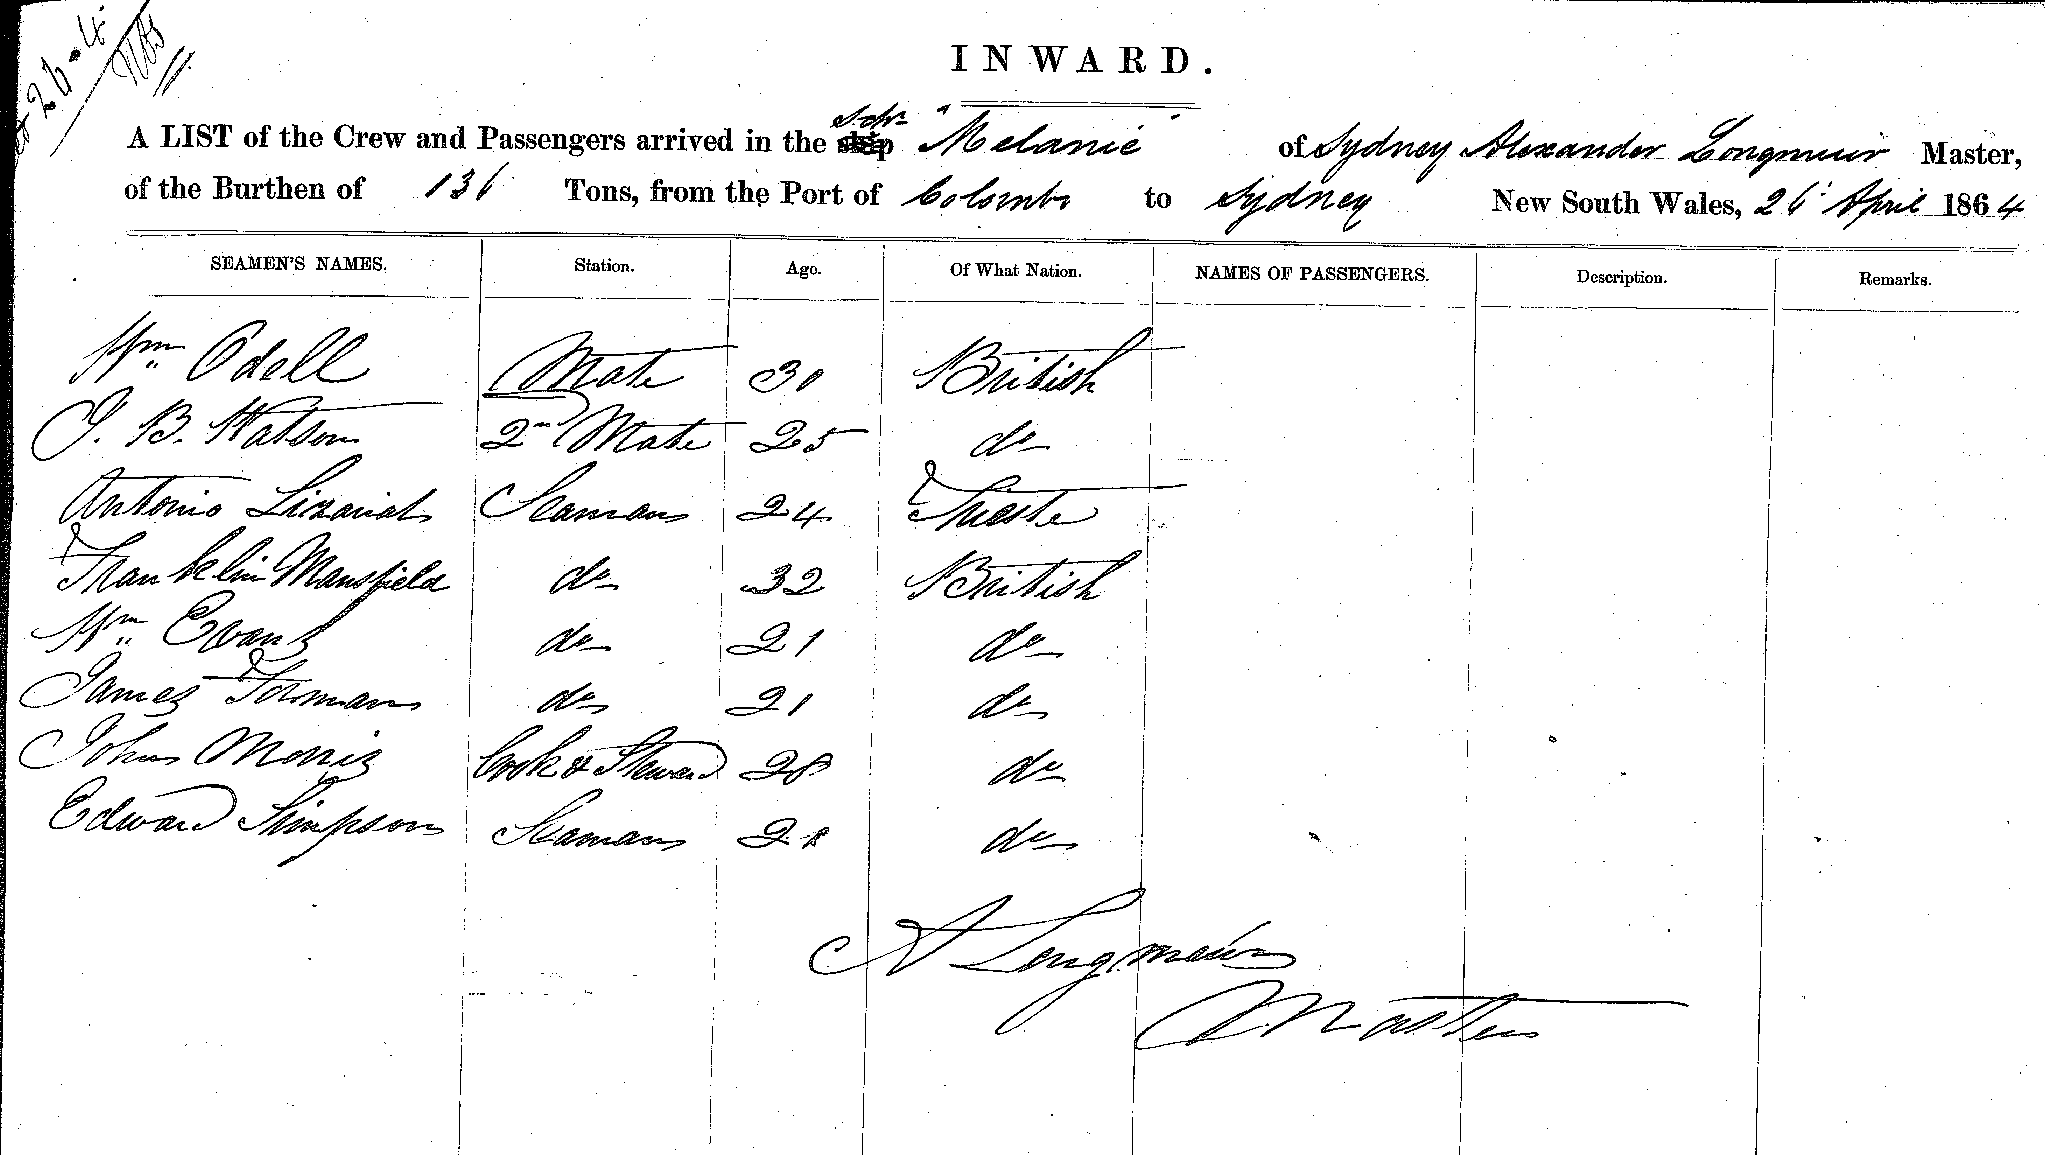 26-4
INWARD.
A LIST of the Crew and Passengers arrived in the Schr "Melanie" of Sydney Alexander Longmuir Master,
of the Burthen of 136 Tons, from the Port of Colombo to Sydney New South Wales, 26 April 1864
SEAMEN'S NAMES. Station. Age. Of What Nation. NAMES OF PASSENGERS. Description. Remarks.
Wm Odell Mate 30 British
J. B. Watson 2nd Mate 25 do
Antonio Seaman 24 Trieste
Franklin Mansfield do 32 British
Wm Evans do 21 do
James Forman do 21 do
John Morris Cook & Steward 28 do
Edward Simpson Seaman do
A Longmuir
Master